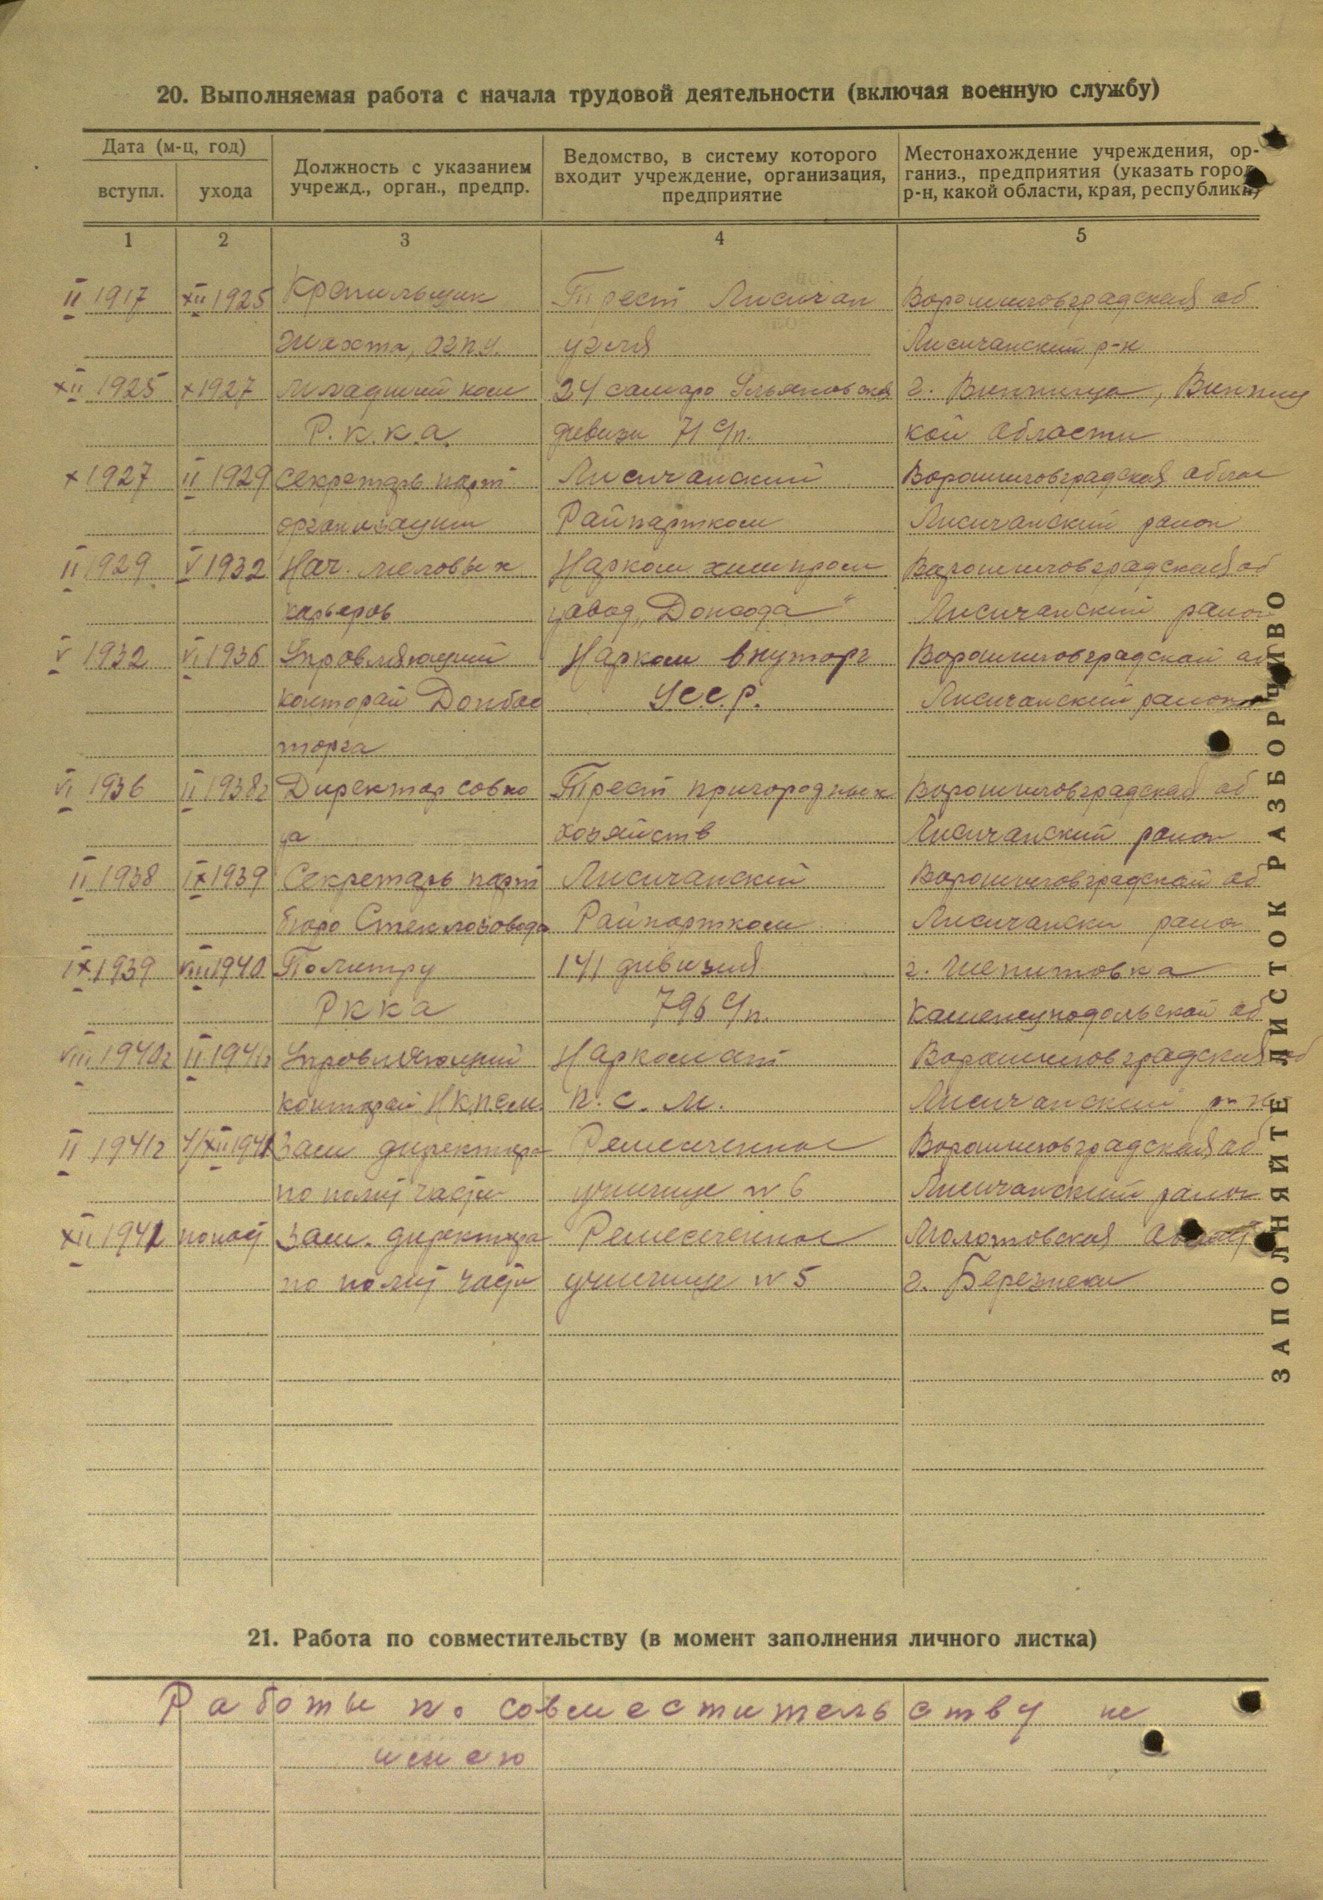 20. Выполняемая работа с начала трудовой деятельности (включая военную службу)
Дата (м-ц, год)
вступл. ухода
Должность с указанием
учрежд., орган., предпр.
Ведомство, в систему которого
входит учреждение, организация,
предприятие
Местонахождение учреждения, ор-
ганиз., предприятия (указать город,
р-н, какой области, края, республики)
1 2 3 4 5
II 1917 XII 1925 Крепильщик Трест Лисичан Ворошиловградская об
шахта, угля Лисичанский р-н
XII 1925 X 1927 Младший ком 24 самаро Ульяновская г. Винница, Винниц
Р.К.К.А. дивизи 71 с/п. кой области
X 1927 II 1929 Секретарь парт Лисичанский Ворошиловградская
организации Райпартком Лисичанский район
II 1929 V 1932 Нач. меловых Нарком химпром Ворошиловградская об
карьеров завод „Донсода" Лисичанский район
V 1932 VI 1936 Управляющий Нарком внуторг Ворошиловградской
конторай Донбас УССР. Лисичанский район
торга
VI 1936 II 1938г Директор совхо Трест пригородных Ворошиловградская об
за хозяйств Лисичанский район
II 1938 IX 1939 Секретарь парт Лисичанский Ворошиловградской об
бюро Стеклозавода Райпартком Лисичански район
IX 1939 VIII 1940 Политру 141 дивизия г. Шепитовка
РККА 796 с/п. Каменецподольской об
VIII 1940г II 1941г Управляющий Наркомат Ворошиловградская об
конторай Н.К.П.С.М. П.С.М. Лисичанский р-н
II 1941г XII 1941 Зам директора Ремесленное Ворошиловградская об
по полит части училище № 6 Лисичанский район
XII 1941 Зам. директора Ремесленное Молотовская
по полит части училище № 5 г. Березнеки
21. Работа по совместительству (в момент заполнения личного листка)
Работы по совместительству не
имею
ЗАПОЛНЯЙТЕ ЛИСТОК РАЗБОРЧИВО